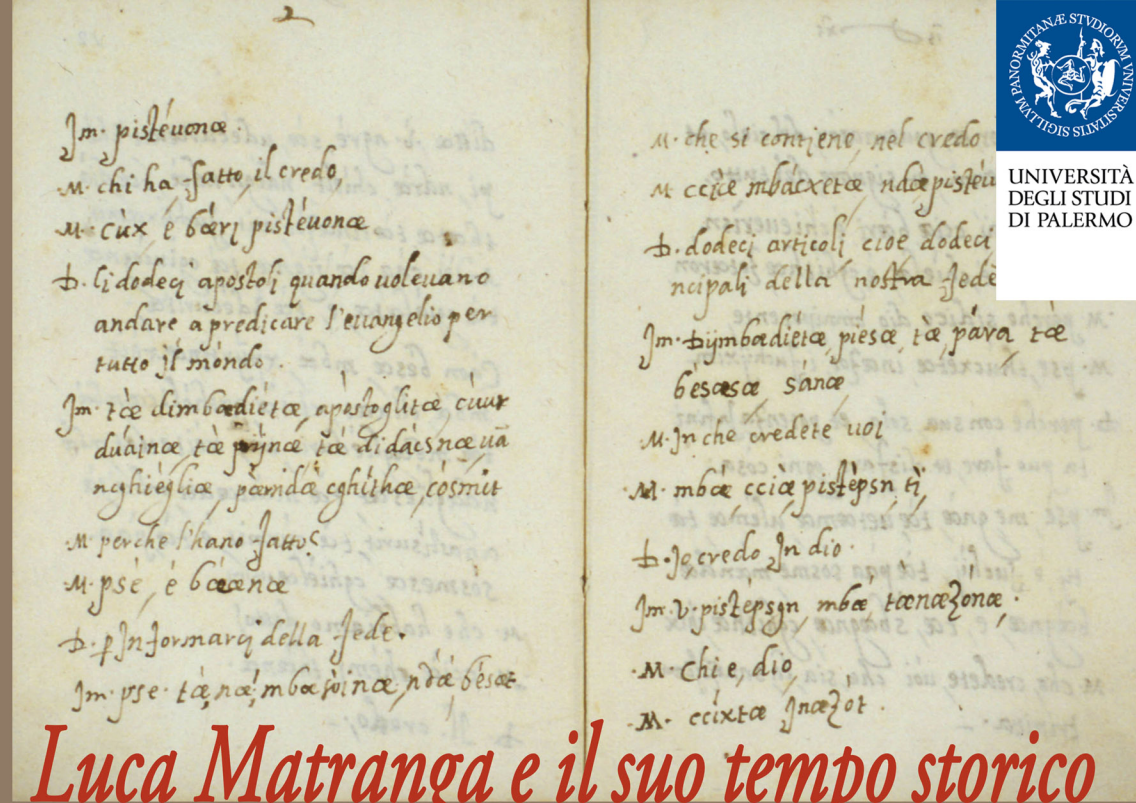 Jm. pistéuonæ
M. chi ha fatto il credo,
M. cùx é bǽrɩ pistéuonæ
D. li dodeci apostoli quando uoleuano
andare a predicare l'euangelio per
tutto il móndo.
Jm. tæ dimbædiétæ, apóstoglitæ cúur
duáinæ tæ tæ didácsnæ
nghiégliæ, pǽmdæ cghíthæ, cósmit
M perche l'hano fatto?
M. psè, é bǽænæ
D. ꝑ Informarci della fede.
Jm. pse. tæ, næ, mbæ ndæ bésæt
M. che si contiene, nel credo
M cciiè mbacxetæ ndæ pistéu
D. dodeci articoli cioe dodeci
ncipali della nostra fede
Jm. Dijmbædietæ piésæ, tæ, páræ, tæ
bésæsæ sánæ
M. In che credete uoi
M. mbæ cciæ pistépsn tì,
D. Jo credo In dio.
Jm. v. pistépsgn mbæ, tænæzónæ.
M. Chi e, dio,
M. ccixtæ Jnæzot.
SIGILLVM PANORMITANÆ STVDIORVM VNIVERSITATIS
UNIVERSITÀ
DEGLI STUDI
DI PALERMO
Luca Matranga e il suo tempo storico